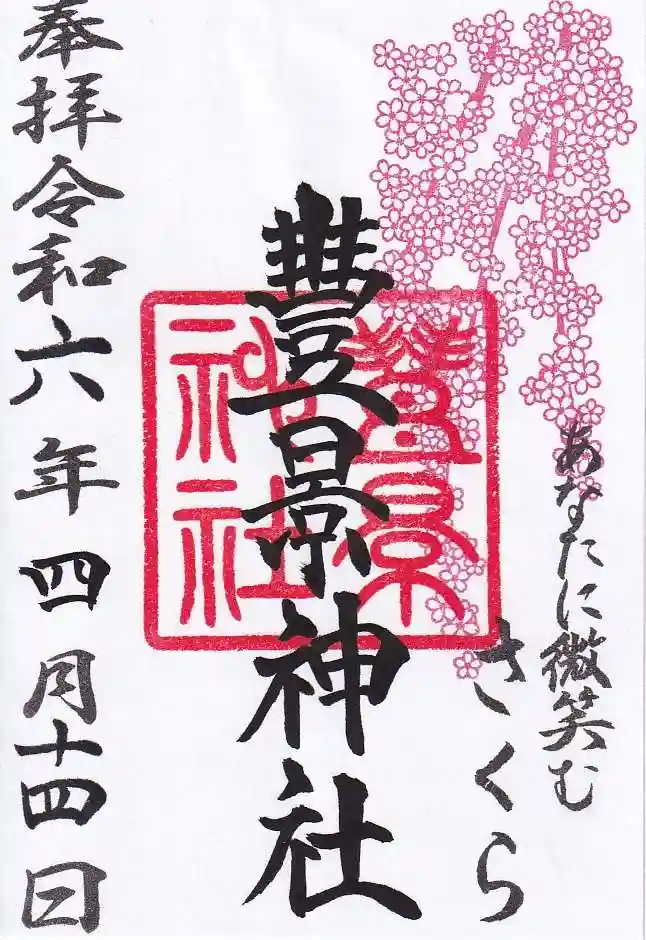 あなたに微笑む
さくら
豐景神社
豐景
神社
奉拝令和六年四月十四日